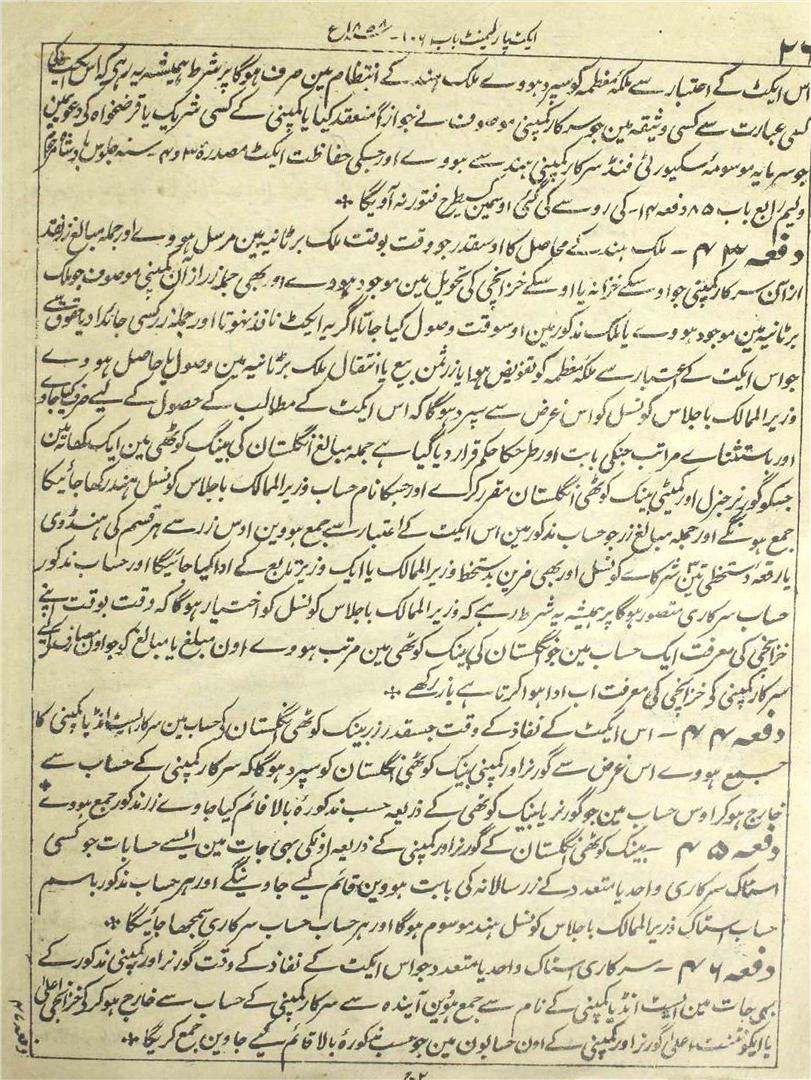 ایکٹ پارلیمنٹ باب ۱۰۶-۱۸۵۸ع
۲۶
اس ایکٹ کے اعتبار سے ملکۂ معظمہ کو سپرد ہووے ملک ہند کے انتظام مین صرف ہوگا پر شرط ہمیشہ یہ رہی کہ اس ایکٹ کی
کسی عبارت سے کسی وثیقہ مین جو سرکار کمپنی موصوف نے جوازاً منعقد کیا یا کمپنی کے کسی شریک یا قرضخواہ کی دعوی مین
جو سرمایہ موسومۂ سکیورٹی فنڈ سرکار کمپنی ہند سے ہووے اور جسکی حفاظت ایکٹ مصدرۂ ۳ و ۴- سنہ جلوس بادشاہ
ولیم رابع باب ۸۵ دفعہ ۱۴- کی رو سے کی گئی اوسمین کسیطرح فتور نہ آویگا ✤
دفعہ ۴۳ - ملک ہند کے محاصل کا اوسقدر جو وقت بوقت ملک برٹانیہ مین مرسل ہووے اور جملہ مبالغ زرنقد
ازان سرکار کمپنی جو اوسکے خزانہ یا اوسکے خزانچی کی تحویل مین موجود ہووے اور بھی جملہ زر ازآن کمپنی موصوف جو ملک
برٹانیہ مین موجود ہووے یا ملک مذکور مین اوسوقت وصول کیا جاتا اگر یہ ایکٹ نافذ نہوتا اور جملہ زر کسی جائداد یا حقوق سے
جو اس ایکٹ کے اعتبار سے ملکۂ معظمہ کو تفویض ہوا یا زرثمن بیع یا انتقال ملک برٹانیہ مین وصول یا حاصل ہووے
وزیرالممالک باجلاس کونسل کو اس غرض سے سپرد ہوگا کہ اس ایکٹ کے مطالب کے حصول کے لیے صرف کیا جاوے
اور باستثناے مراتب جنکی بابت اور طرحکا حکم قرار دیا گیا ہے جملہ مبالغ انگلستان کی بینک کوٹھی مین ایک کھاتہ مین
جسکو گورنر جنرل اور کمیٹی بینک کوٹھی انگلستان مقرر کرے اور جسکا نام حساب وزیرالممالک باجلاس کونسل ہند رکھا جائیگا
جمع ہونگے اور جملہ مبالغ زر جو حساب مذکور مین اس ایکٹ کے اعتبار سے جمع ہووین اوس زر سے ہر قسم کی ہنڈوی
یا رقعہ دستخطی تین شرکاے کونسل اور بھی مزین بدستخط وزیرالممالک یا ایک وزیر تابع کے ادا کیا جائیگا اور حساب مذکور
حساب سرکاری متصور ہوگا پر ہمیشہ یہ شرط رہے کہ وزیرالممالک باجلاس کونسل کو اختیار ہوگا کہ وقت بوقت اپنے
خزانچی کی معرفت ایک حساب مین جو انگلستان کی بینک کوٹھی مین مرتب ہووے اون مبلغ یا مبالغ کو جو اون مصارف کے لیے
سرکار کمپنی کی خزانچی کی معرفت اب ادا ہوا کرتا ہے باز رکھے ✤
دفعہ ۴۴ - اس ایکٹ کے نفاذ کے وقت جسقدر زر بینک کوٹھی انگلستان کی حساب مین سرکار ایسٹ انڈیا کمپنی کا
جمع ہووے اس غرض سے گورنر اور کمپنی بینک کوٹھی انگلستان کو سپرد ہوگا کہ سرکار کمپنی کے حساب سے
خارج ہوکر اوس حساب مین جو گورنر یا بینک کوٹھی کے ذریعہ حسب مذکورۂ بالا قائم کیا جاوے زر مذکور جمع ہووے ✤
دفعہ ۴۵ - بینک کوٹھی انگلستان کے گورنر اور کمپنی کے ذریعہ اونکی بہی جات مین ایسے حسابات جو کسی
استاک سرکاری واحد یا متعدد کے زر سالانہ کی بابت ہووین قائم کیے جاوینگے اور ہر حساب مذکور باسم
حساب استاک وزیرالممالک باجلاس کونسل ہند موسوم ہوگا اور ہر حساب حساب سرکاری سمجھا جائیگا ✤
دفعہ ۴۶ - سرکاری استاک واحد یا متعدد جو اس ایکٹ کے نفاذ کے وقت گورنر اور کمپنی مذکور کے
بہی جات مین ایسٹ انڈیا کمپنی کے نام سے جمع ہووین آیندہ سے سرکار کمپنی کے حساب سے خارج ہوکر کی خزانچی اعلی
یا ایکونٹنٹ اعلی گورنر اور کمپنی کے اون حسابون مین جو حسب مذکورۂ بالا قائم کیے جاوین جمع کریگا ✤
دفعہ ۴۷